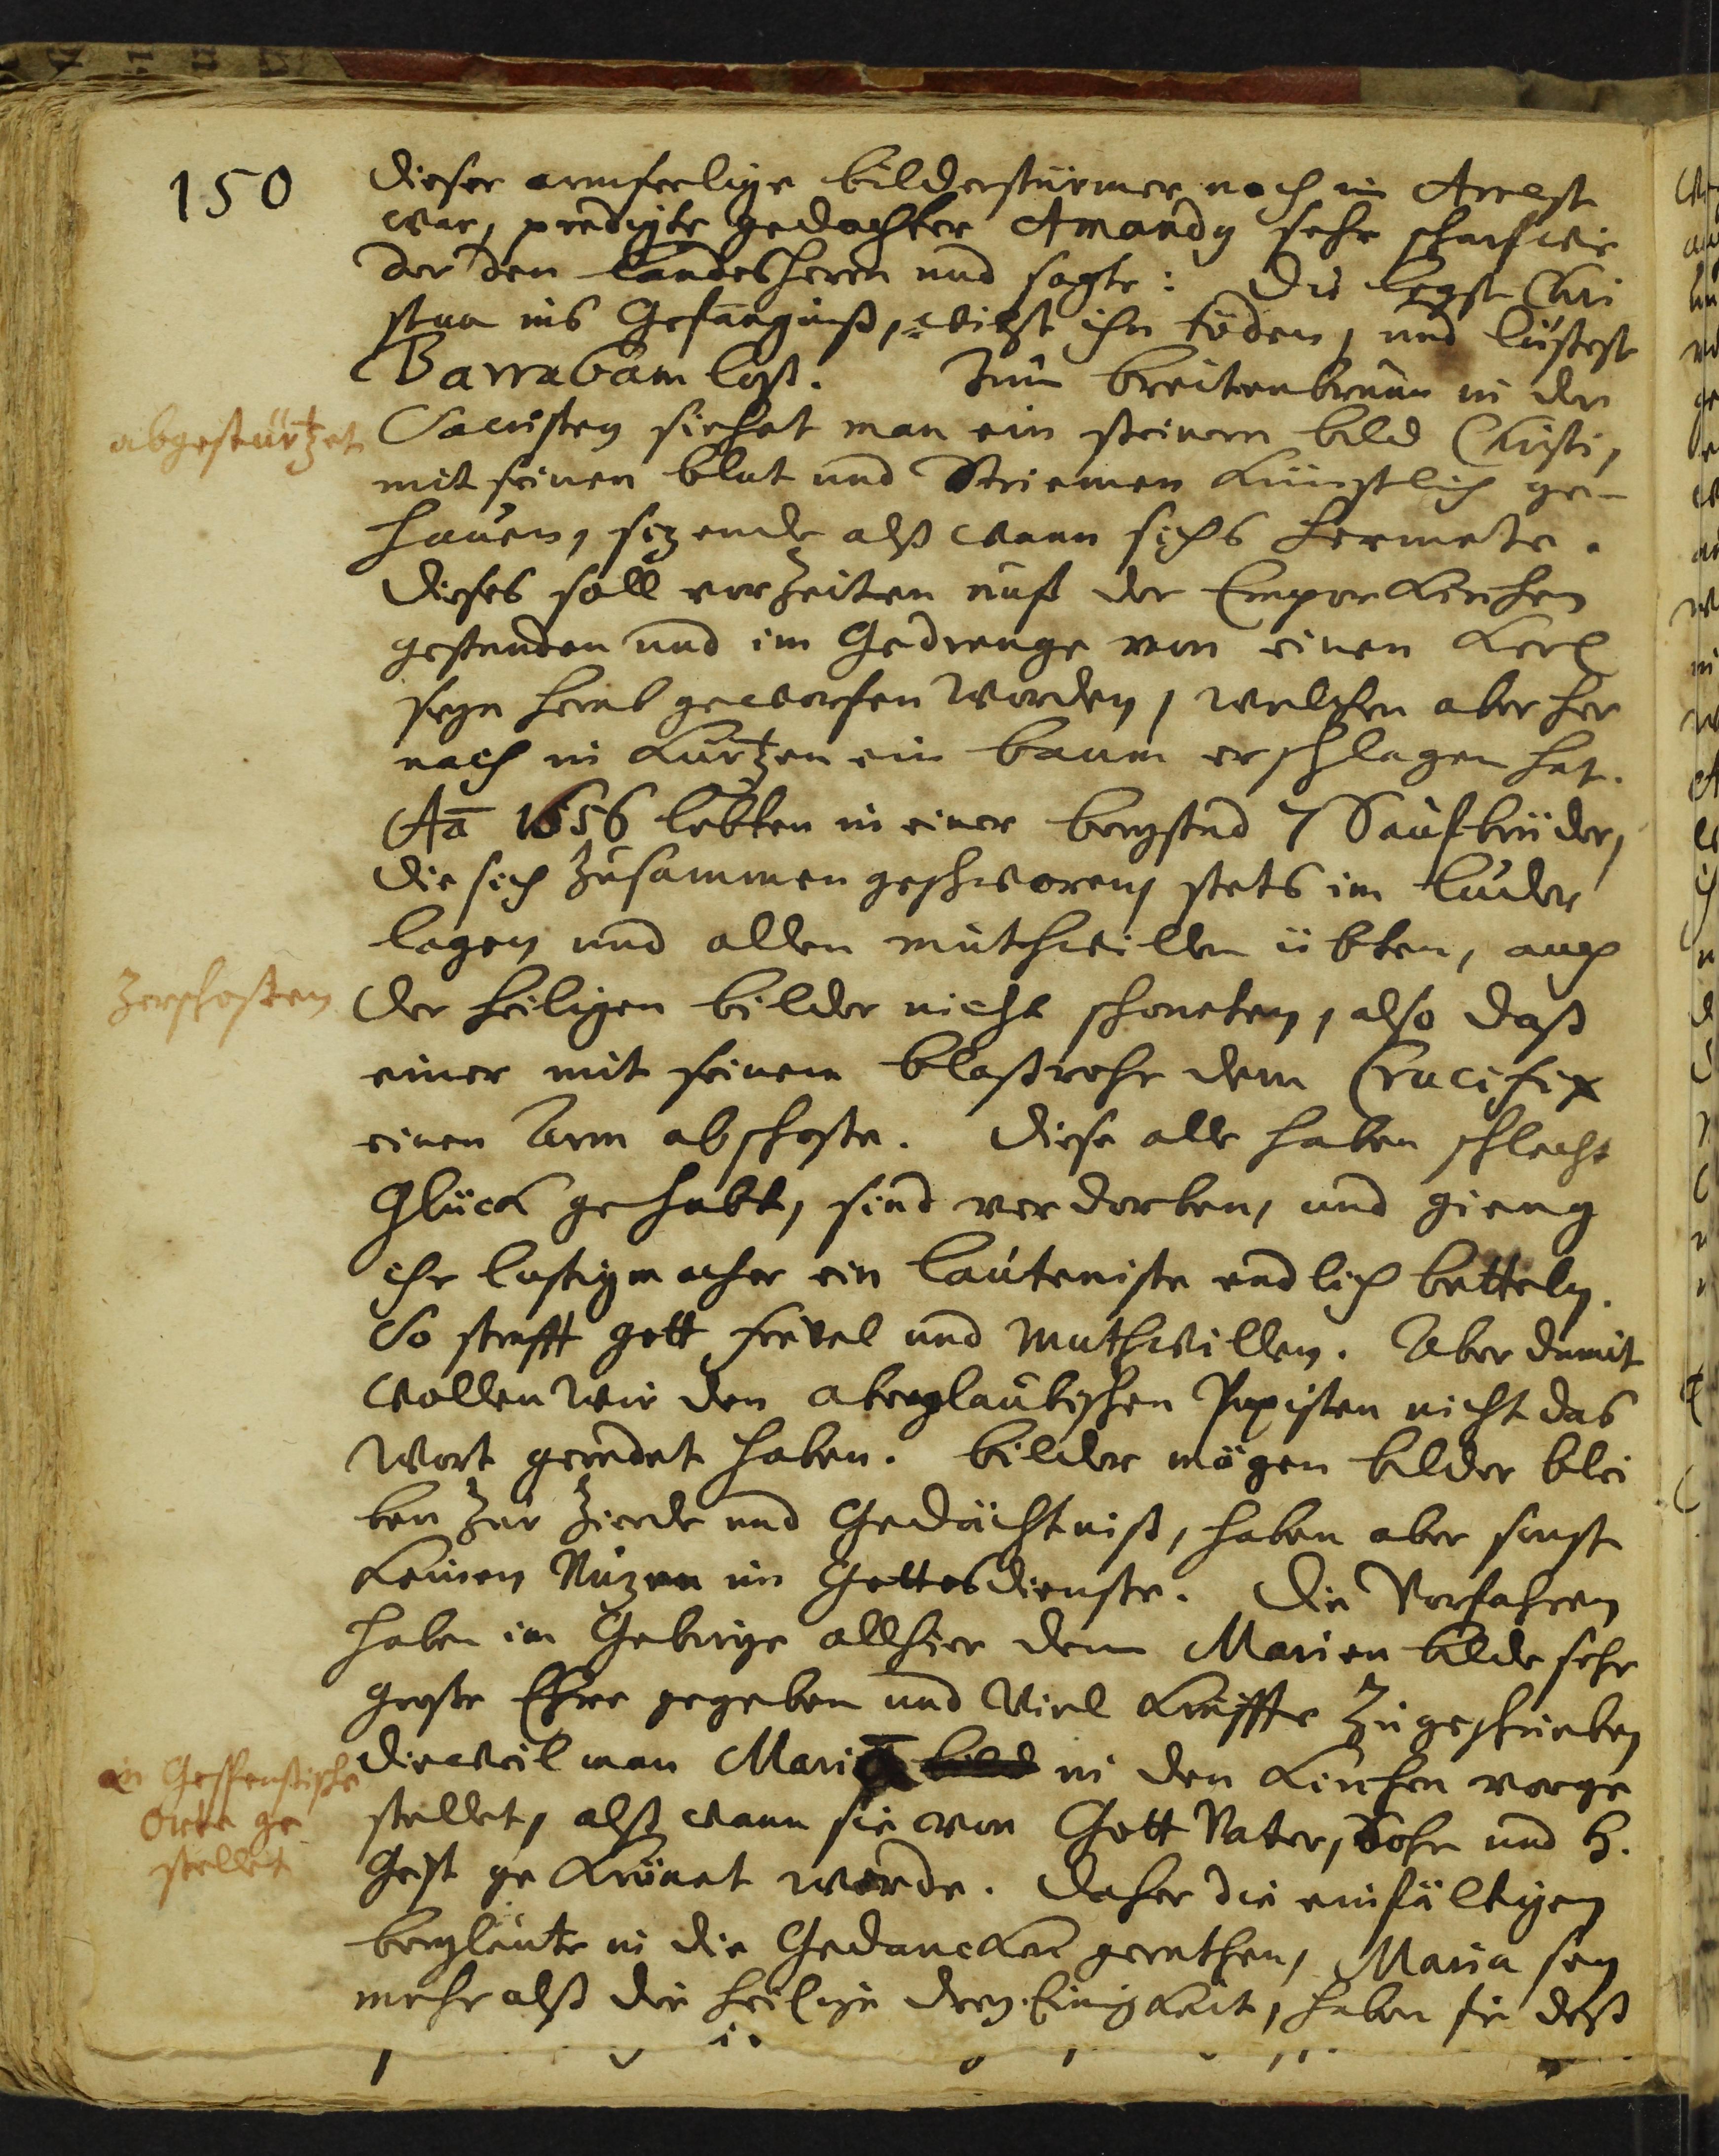 150
dieser armseelige bilderstürmer noch in Arrest
war, predigte gedachter Amandy sehr scharf wie
der den Landesherrn und sagte: Du legst Chri
stum ins Gefängniß, wilst ihn töden, und lässest
Barrabam loß. Zum breitenbrunn in der
abgestürtzet
Sacristey siehet man ein steinern bild Christi,
mit seinen blut und Striemen Künstlich ge-
hauen, sizende alß wann sichs hermete.
dieses soll vorzeiten auf der Emporkirchen
gestanden und im Gedrenge von einen Kerl
seyn herab geworfen worden, welchen aber her
nach in Kurtzen ein baum erschlagen hat.
Aō 1656 lebten in einer bergstad 7 Saufbrüder,
die sich zusammen geschworen, stets im luder
lagen und allen muthwillen übten, auch
zerschossen
der heiligen bilder nicht schoneten, also daß
einer mit seinem blaßrohr dem Crucifix
einen Arm abschosse. diese alle haben schlecht
Glück gehabt, sind verdorben, und gieng
ihr lustigmacher ein lauteniste endlich betteln.
So strafft gott frevel und Muthwillen. Aber damit
wollen wir den aberglaubischen Papisten nicht das
Wort geredet haben. bilder mögen bilder blei
ben zur Zierde und Gedächtniß, haben aber sonst
keinen Nuzen im Gottesdienste. Die Vorfahren
haben im Gebirge allhier dem Marien bilde sehr
große Ehre gegeben und Viel Kräffte zugeschrieben
an Gespenstische
Orte ge
stellet
dieweil man Mariā bild in den Kirchen vorge
stellet, alß wann sie von Gott Vater, Sohn und H.
Geist gekrönet werde. daher die einfältigen
bergleute in die Gedancken gerathen, Maria sey
mehr alß die heilige drey Einigkeit, haben sie deß